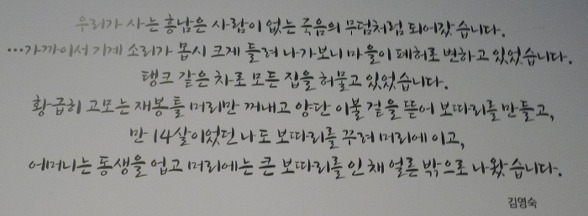 우리가 사는 흥남은 사람이 없는 죽음의 무덤처럼 되어갔습니다.
…가까이서 기계 소리가 몹시 크게 들려 나가보니 마을이 폐허로 변하고 있었습니다.
탱크 같은 차로 모든 집을 허물고 있었습니다.
황급히 고모는 재봉틀 머리만 꺼내고 양단 이불 겉을 뜯어 보따리를 만들고,
만 14살이었던 나도 보따리를 꾸려 머리에 이고,
어머니는 동생을 업고 머리에는 큰 보따리를 인 채 얼른 밖으로 나왔습니다.
김영숙